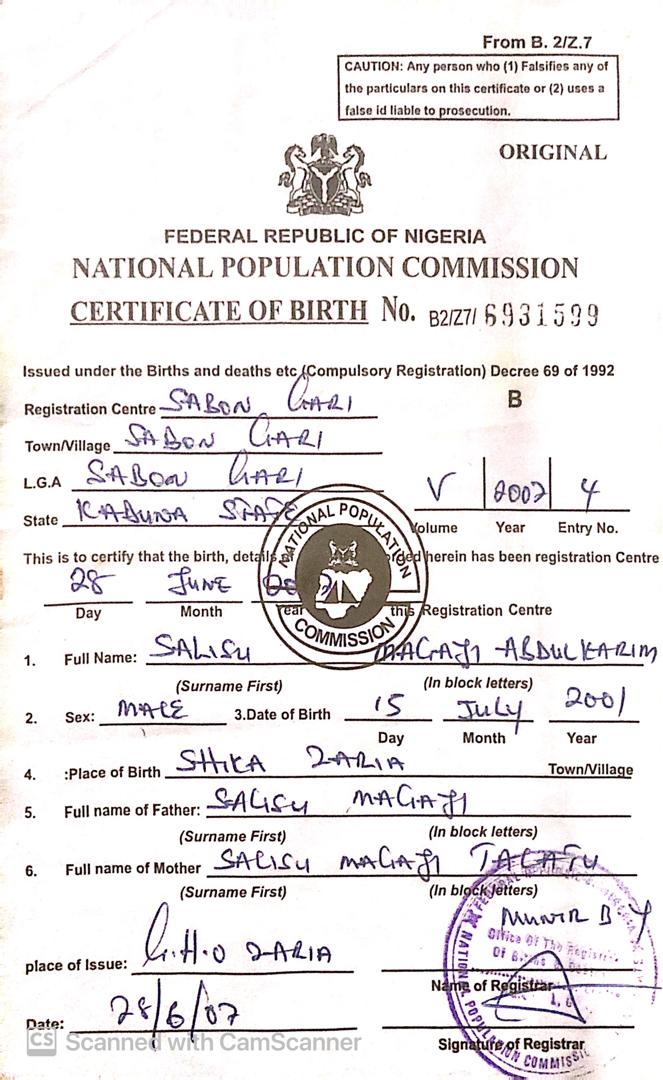 From B. 2/Z.7
CAUTION: Any person who (1) Falsifies any of
the particulars on this certificate or (2) uses a
false id liable to prosecution.
ORIGINAL
FEDERAL REPUBLIC OF NIGERIA
NATIONAL POPULATION COMMISSION
CERTIFICATE OF BIRTH No. B2/Z7/ 6931599
Issued under the Births and deaths etc (Compulsory Registration) Decree 69 of 1992
Registration Centre SABON GARI B
Town/Village SABON GARI
L.G.A SABON GARI
V 2007 4
State KADUNA STATE
Volume Year Entry No.
NATIONAL POPULATION COMMISSION
This is to certify that the birth, details herein has been registration Centre
28 JUNE 2007
Day Month Year this Registration Centre
1. Full Name: SALISU MAGAJI ABDULKARIM
(Surname First) (In block letters)
2. Sex: MALE 3.Date of Birth 15 July 2001
Day Month Year
4. :Place of Birth SHIKA ZARIA Town/Village
5. Full name of Father: SALISU MAGAJI
(Surname First) (In block letters)
6. Full name of Mother SALISU MAGAJI TALATU
(Surname First) (In block letters)
MUNIR B Y
place of Issue: G.H.O ZARIA
Name of Registrar
Office Of The Registrar
Of
NATIONAL POPULATION COMMISSION
Date: 28/6/07
Signature of Registrar
CS Scanned with CamScanner